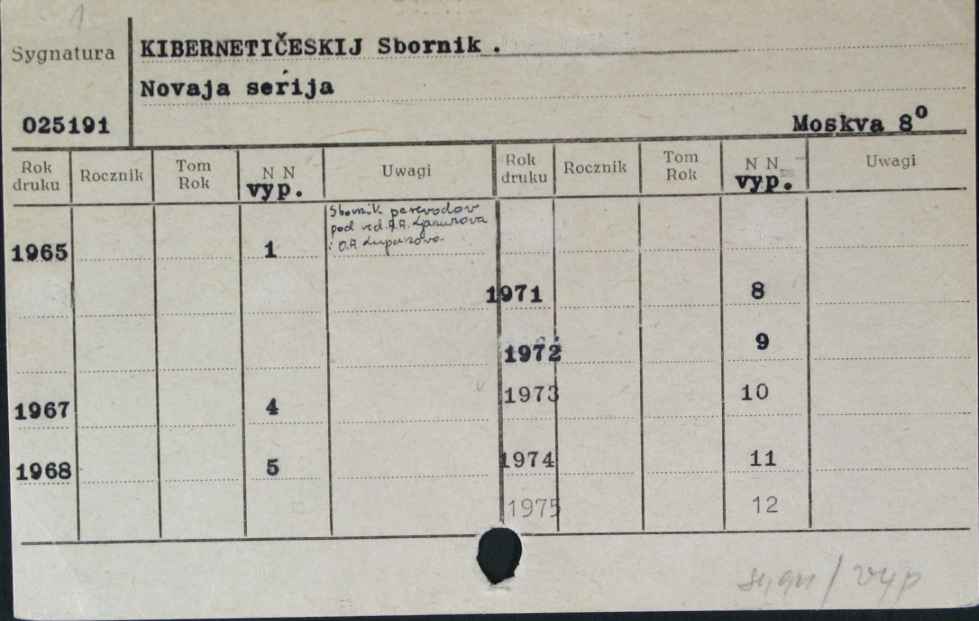 1
Sygnatura
KIBERNETIČESKIJ Sbornik.
Novaja serija
025191
Moskva 8°
Rok druku Rocznik Tom Rok N N vyp. Uwagi Rok druku Rocznik Tom Rok N N vyp. Uwagi
Sbornik perevodov
pod red. A.A. Ljapunova
i O.B. Lupanova
1965 1
1971 8
1972 9
1967 4 1973 10
1968 5 1974 11
1975 12
sygn / vyp